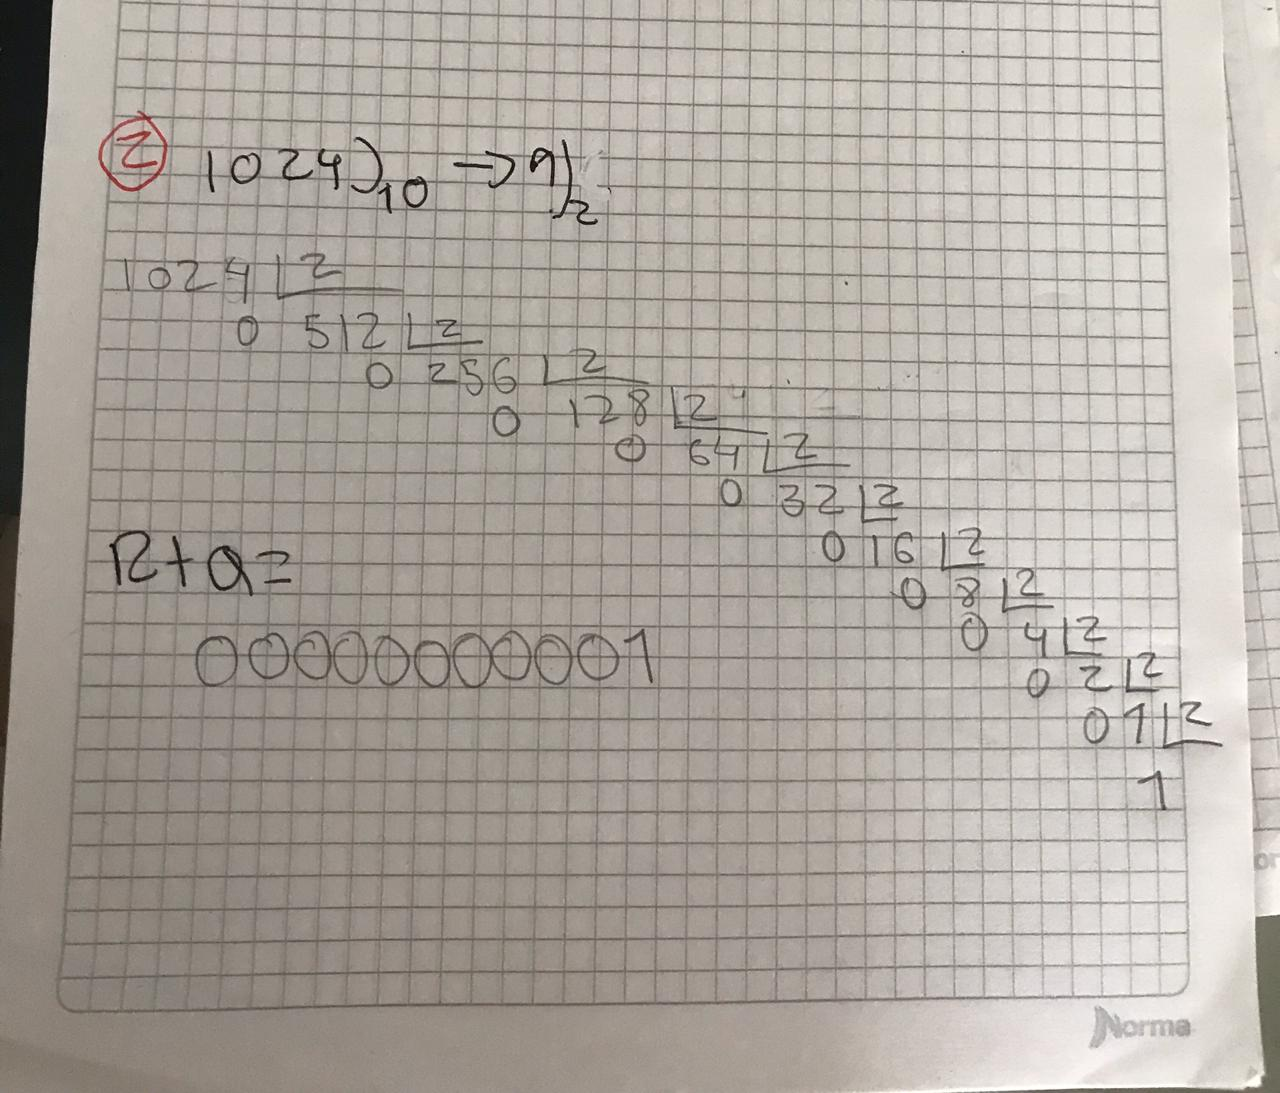 2 1024)10 → 9)2
1024 2
0 512 2
0 256 2
0 128 2
0 64 2
0 32 2
0 16 2
0 8 2
0 4 2
0 2 2
0 1 2
1
R+a=
00000000001
Norma